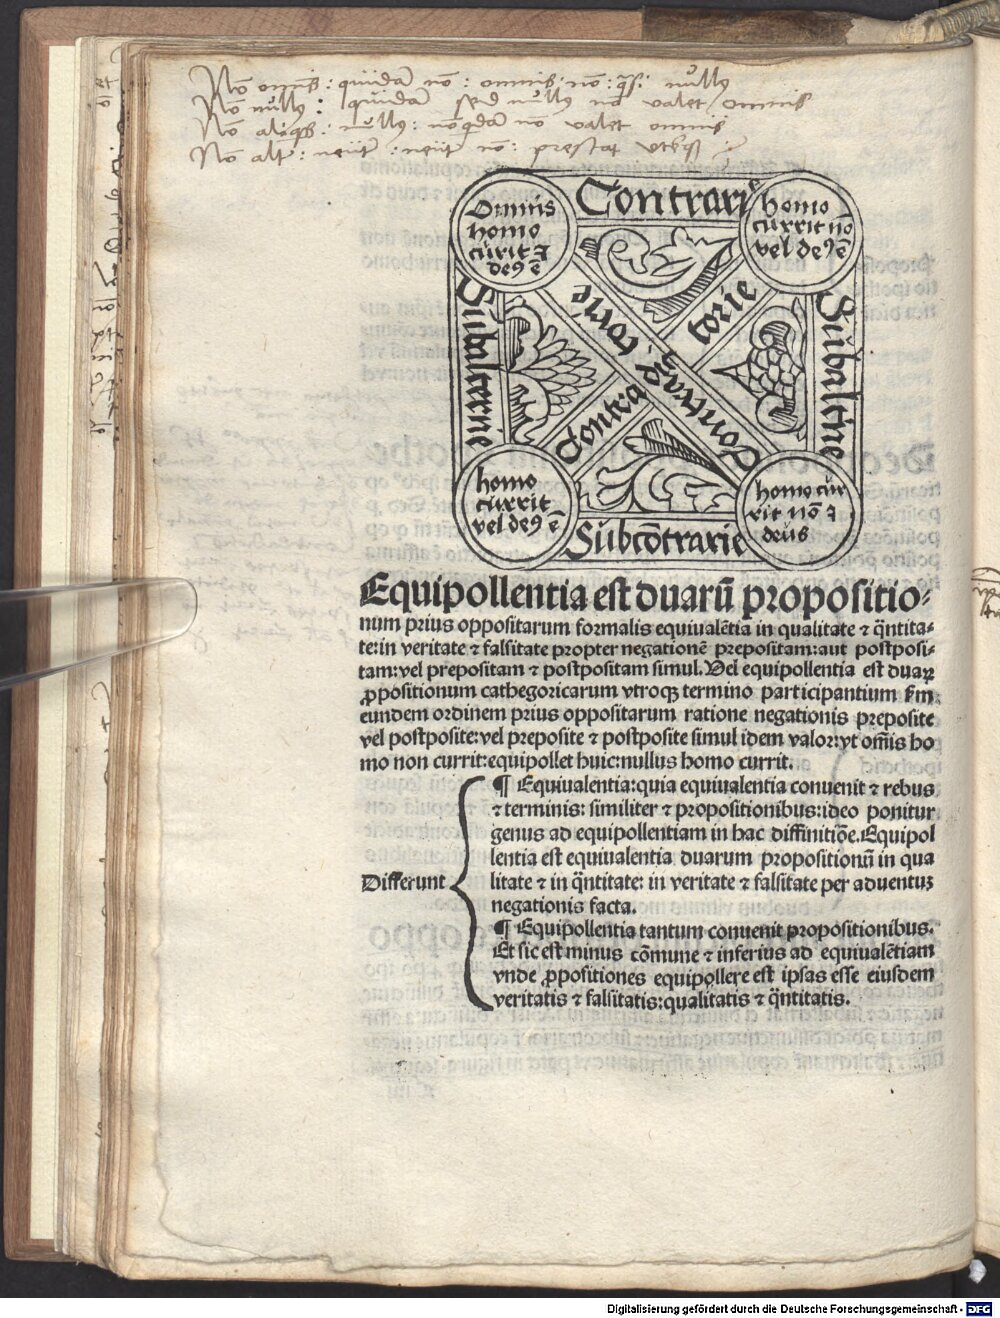 Nō omnis : quidā nō : omnis nō : q̄si : nullꝰ
Nō nullꝰ : quidā sed nullꝰ nō valet omnis
Nō aliqs : nullꝰ : nōq̄dā nō valet omnis
Nō alt̄ : neut̄ : neut̄ nō : prestat vterqꝫ
Contrarie
Omnis
homo
currit ⁊
deꝰ ē
homo
currit nō
vel deꝰ ē
Subalterne
Contradictorie
Contradictorie
Subalterne
homo
currit
vel deꝰ ē
homo cur
rit nō ⁊
deus
Subcōtrarie
Equipollentia est duarū propositio⸗
num prius oppositarum formalis equiualētia in qualitate ⁊ q̄ntita⸗
te:in veritate ⁊ falsitate propter negationē prepositam:aut postposi⸗
tam:vel prepositam ⁊ postpositam simul. Uel equipollentia est duaꝝ
ꝓpositionum cathegoricarum vtroqꝫ termino participantium scd̄m
eundem ordinem prius oppositarum ratione negationis preposite
vel postposite:vel preposite ⁊ postposite simul idem valor:vt om̄is ho
mo non currit:equipollet huic:nullus homo currit.
Differunt
¶ Equiualentia:quia equiualentia conuenit ⁊ rebus
⁊ terminis: similiter ⁊ propositionibus:ideo ponitur
genus ad equipollentiam in hac diffinitiōe. Equipol
lentia est equiualentia duarum propositionū in qua
litate ⁊ in q̄ntitate: in veritate ⁊ falsitate per aduentuꝫ
negationis facta.
¶ Equipollentia tantum conuenit propositionibus.
Et sic est minus cōmune ⁊ inferius ad equiualētiam
vnde ꝓpositiones equipollere est ipsas esse eiusdem
veritatis ⁊ falsitatis:qualitatis ⁊ q̄ntitatis.
Digitalisierung gefördert durch die Deutsche Forschungsgemeinschaft - DFG